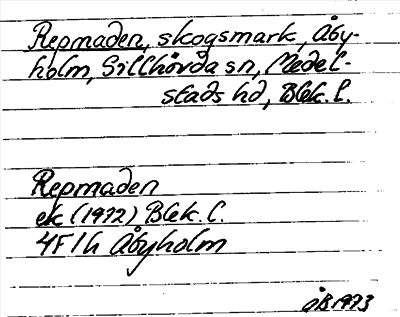 Repmaden, skogsmark, Åby-
holm, Sillhövda sn, Medel-
stads hd, Blek. l.
Repmaden
ek (1972) Blek. l.
4F1h Åbyholm
ÅB 1973